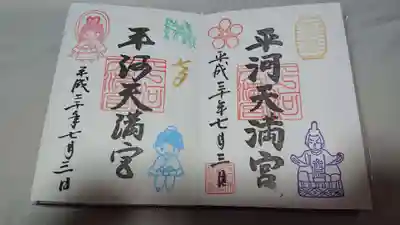 平河天満宮
平成三十年七月三日
平河天満宮
平成三十年七月三日